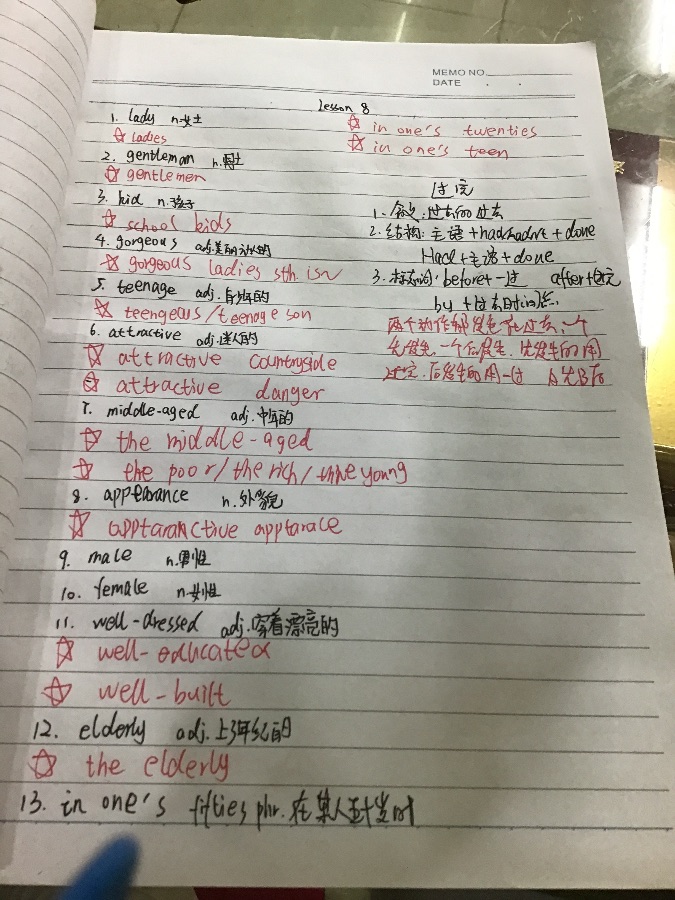 MEMO NO.
DATE
Lesson 8
1. lady n.女士
☆ ladies
2. gentleman n.男士
☆ gentlemen
3. kid n.孩子
☆ school kids
4. gorgeous adj.美丽动人的
☆ gorgeous ladies sth isn
5. teenage adj.青少年的
☆ teengeous/teenage son
6. attractive adj.迷人的
☆ attractive countryside
☆ attractive danger
7. middle-aged adj.中年的
☆ the middle-aged
☆ the poor/the rich/ young
8. appearance n.外貌
☆
9. male n.男性
10. female n.女性
11. well-dressed adj.穿着漂亮的
☆ well-educated
☆ well-built
12. elderly adj.上了年纪的
☆ the elderly
13. in one's fifties phr.在某人五十岁时
☆ in one's twenties
☆ in one's teen
过完
1. 含义:过去的过去
2. 结构: 主语+had/hadn't+done
Had+主语+done
3. 标志词: before+一过 after+过完
by+过去时间
两个动作都发生在过去,一个
先发生,一个后发生,先发生的用
过完,后发生的用一过 A先B后